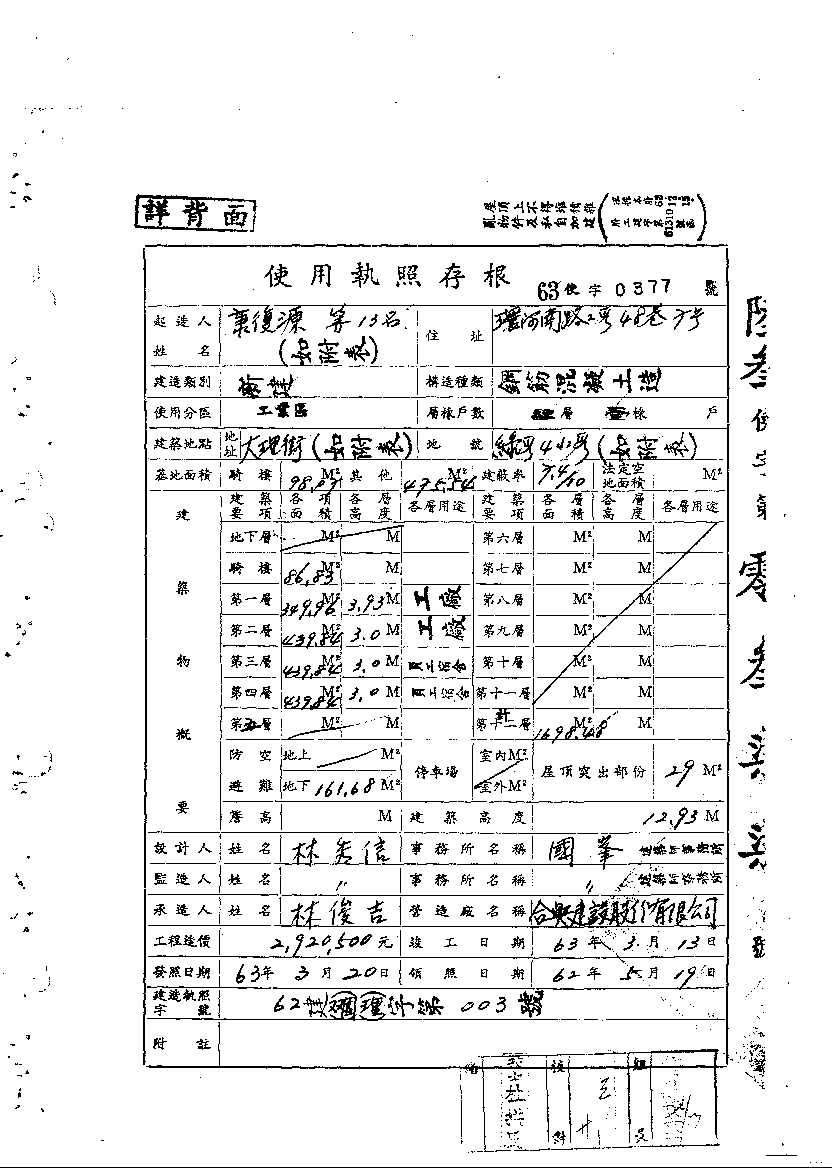 詳背面
屋頂上不得堆積雜
亂物件及私自加建
使用執照存根 63使字0377號
起造人姓名 復源等13名(如附表) 住址 環河南路2段48巷7号
建造類別 新建 構造種類 鋼筋混凝土造
使用分區 工業區 層棟戶數 層 壹棟 戶
建築地點 地址 大理街(如附表) 地號 4小段(如附表)
基地面積 騎樓 98.07M² 其他 475.54M² 建蔽率 7.4/10 法定空地面積 M²
建築物概要 建築要項 各項面積 各層高度 各層用途 建築要項 各層面積 各層高度 各層用途
地下層 M² M 第六層 M² M
騎樓 86.83M² M 第七層 M² M
第一層 349.96M² 3.93M 工廠 第八層 M² M
第二層 439.84M² 3.0M 工廠 第九層 M² M
第三層 439.84M² 3.0M 員工宿舍 第十層 M² M
第四層 439.84M² 3.0M 員工宿舍 第十一層 M² M
第五層 M² M 第十二層 計 1698.48M² M
防空避難 地上 M² 停車場 室內M² 屋頂突出部份 29M²
地下 161.68M² 室外M²
簷高 M 建築高度 12.93M
設計人 姓名 林秀信 事務所名稱 國峯建築師事務所
監造人 姓名 〃 事務所名稱 〃 建築師事務所
承造人 姓名 林俊吉 營造廠名稱 合興建設股份有限公司
工程造價 2,920,500元 竣工日期 63年3月13日
發照日期 63年3月20日 領照日期 62年5月19日
建造執照字號 62建(理)字第003號
附註
陸叁使字第零叁柒柒號